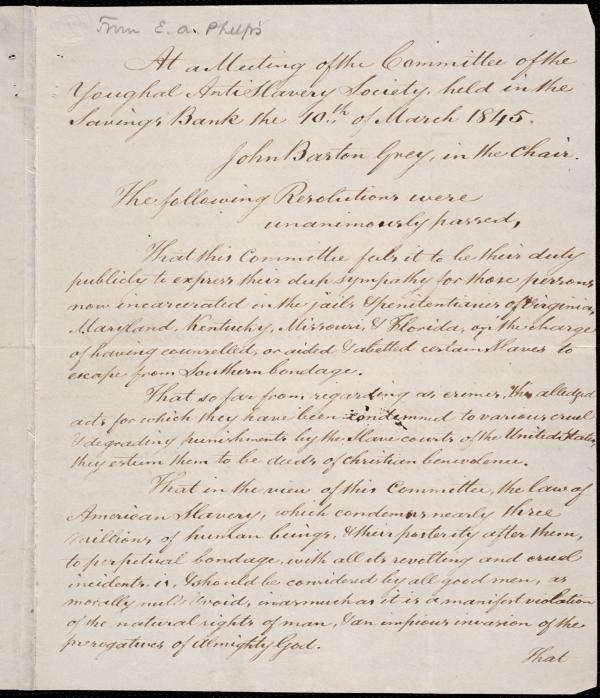 From E. A. Phelps
At a Meeting of the Committee of the
Youghal Anti Slavery Society, held in the
Savings Bank the 10.th of March 1845.
John Barton Grey, in the Chair.
The following Resolutions were
unanimously passed,
That this Committee feels it to be their duty
publicly to express their deep sympathy for those persons
now incarcerated in the jails & penitentiaries of Virginia,
Maryland, Kentucky, Missouri, & Florida, on the charge
of having counselled, or aided & abetted certain Slaves to
escape from Southern bondage.
That so far from regarding as crimes, the alledged
acts for which they have been condemned to various cruel
& degrading punishments by the Slave courts of the United States,
they esteem them to be deeds of christian benevolence.
That in the view of this Committee, the law of
American Slavery, which condemns nearly three
millions of human beings, & their posterity after them,
to perpetual bondage, with all its revolting and cruel
incidents, is, & should be considered by all good men, as
morally null & void, inasmuch as it is a manifest violation
of the natural rights of man, & an impious invasion of the
prerogatives of Almighty God.
That